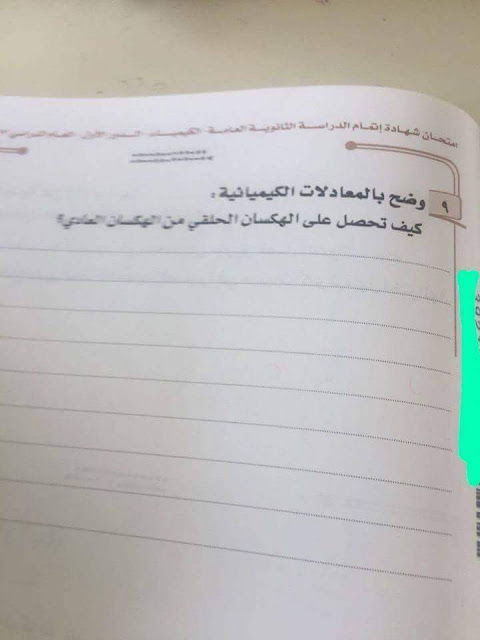 امتحان شهادة إتمام الدراسة الثانوية العامة - الكيمياء - الدور الأول - العام الدراسي
٩
وضح بالمعادلات الكيميائية :
كيف تحصل على الهكسان الحلقي من الهكسان العادي؟